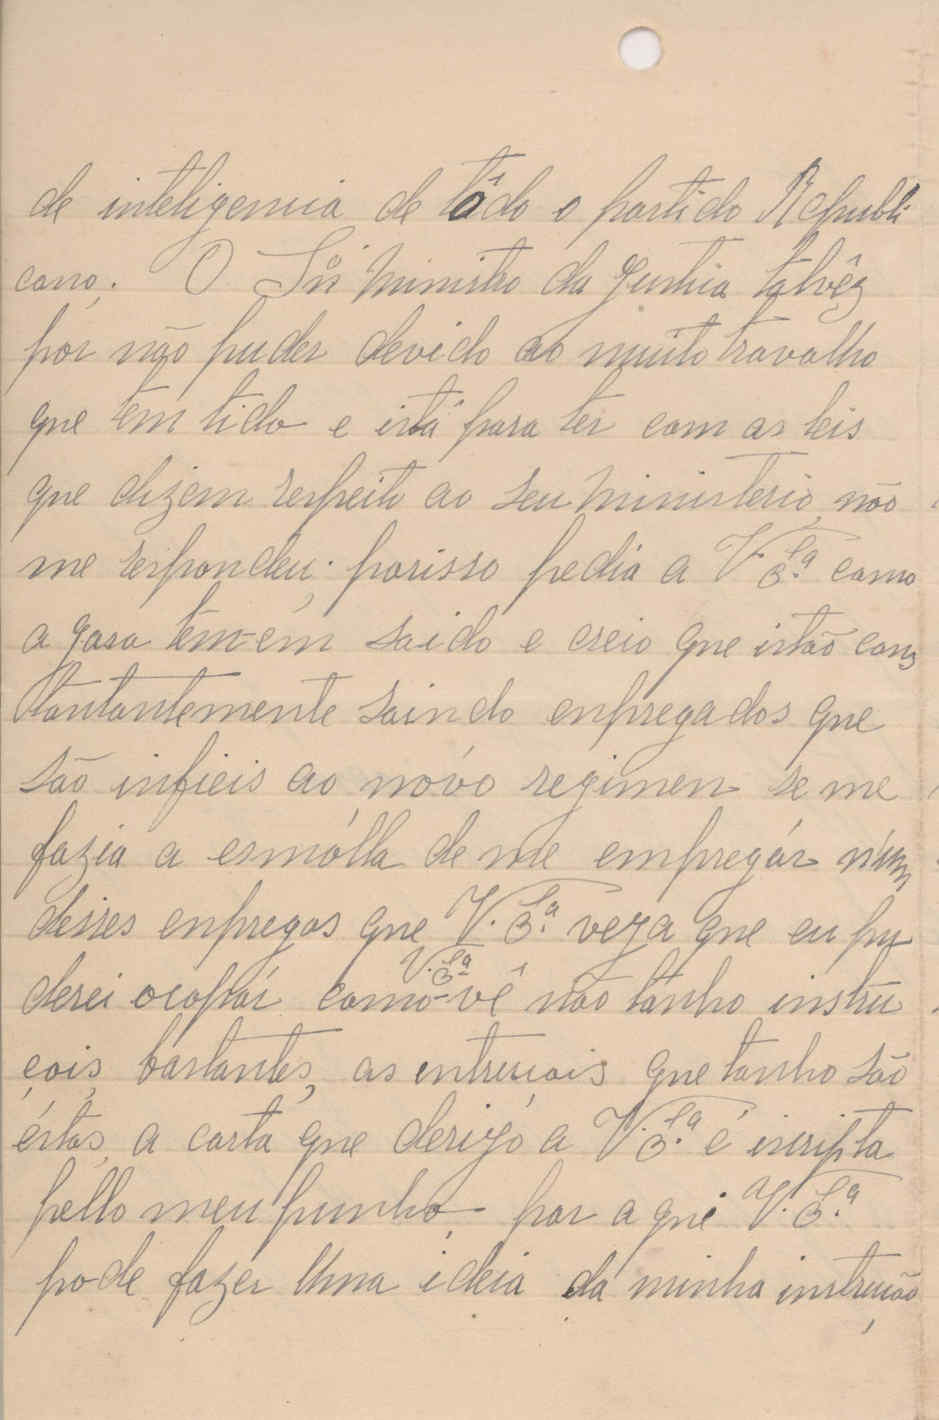 de inteligencia de tôdo o partido Republi
cano; O Snr Ministro da Justiça talvêz
por não puder devido ao muito travalho
que tem tido e istá para ter com as leis
que dizem respeito ao seu Ministerio, não
me respondeu; porisso pedia a V. S.ª como
agora tem-em saido e creio que istão cons
tantantemente saindo enpregados que
são infieis ao nóvo regimen se me
fazia a esmólla de me empregár núm
desses enpregos que V. S.ª veja que eu pu
derei ocopár como V. S.ª vê não tanho instru
çois, bastantes, as entrucois que tanho são
éstas, a carta que derijo a V. S.ª é iscripta
pello meu punho, por aqui V. S.ª
pode fazer Uma ideia da minha instrução,